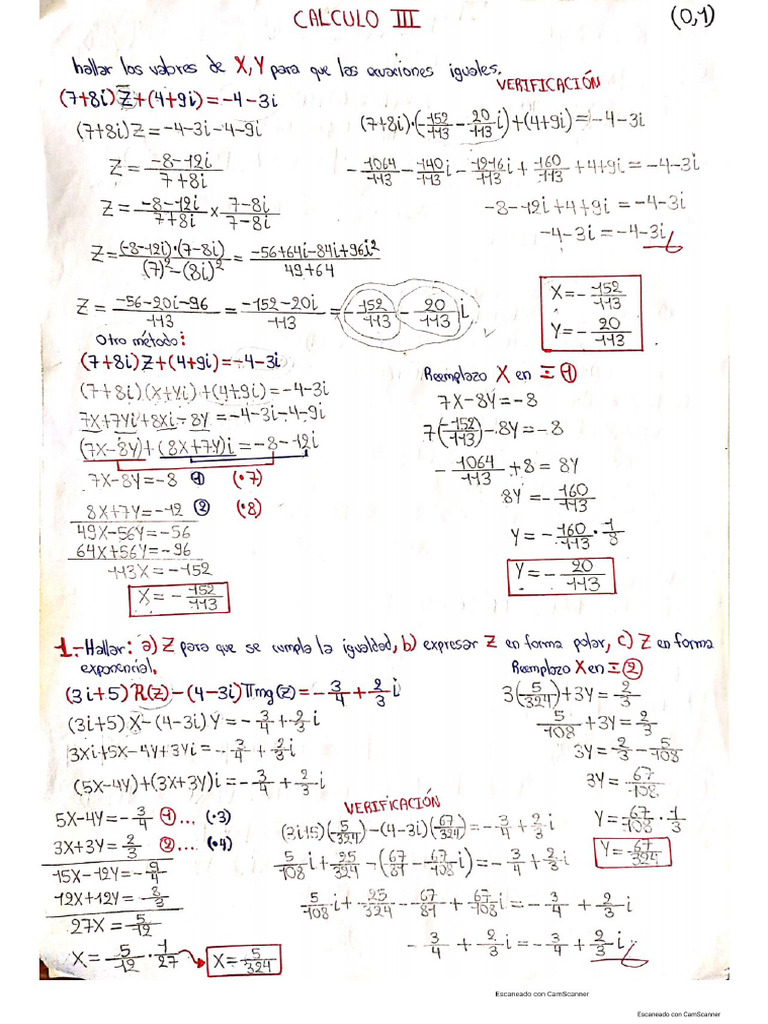 CALCULO III
(0,1)
hallar los valores de X, Y para que las ecuaciones iguales.
(7+8i) Z̄+(4+9i)=-4-3i
(7+8i)Z=-4-3i-4-9i
Z=\frac{-8-12i}{7+8i}
Z=\frac{-8-12i}{7+8i} x \frac{7-8i}{7-8i}
Z=\frac{(-8-12i)·(7-8i)}{(7)²-(8i)²}=\frac{-56+64i-84i+96i²}{49+64}
Z=\frac{-56-20i-96}{113}=\frac{-152-20i}{113}=-\frac{152}{113}-\frac{20}{113}i
VERIFICACIÓN
(7+8i)·(-\frac{152}{113}-\frac{20}{113}i)+(4+9i)=-4-3i
-\frac{1064}{113}-\frac{140}{113}i-\frac{1216}{113}i+\frac{160}{113}+4+9i=-4-3i
-8-12i+4+9i=-4-3i
-4-3i=-4-3i
X=-\frac{152}{113}
Y=-\frac{20}{113}
Otro método:
(7+8i)Z+(4+9i)=-4-3i
(7+8i)(X+Yi)+(4+9i)=-4-3i
7X+7Yi+8Xi-8Y=-4-3i-4-9i
(7X-8Y)+(8X+7Y)i=-8-12i
7X-8Y=-8 ① (·7)
8X+7Y=-12 ② (·8)
49X-56Y=-56
64X+56Y=-96
113X=-152
X=-\frac{152}{113}
Reemplazo X en Ξ①
7X-8Y=-8
7(-\frac{152}{113})-8Y=-8
-\frac{1064}{113}+8=8Y
8Y=-\frac{160}{113}
Y=-\frac{160}{113}·\frac{1}{8}
Y=-\frac{20}{113}
1.-Hallar: a) Z para que se cumpla la igualdad, b) expresar Z en forma polar, c) Z en forma
exponencial.
(3i+5) R(Z)-(4-3i)IImg(z)=-\frac{3}{4}+\frac{2}{3}i
(3i+5)X-(4-3i)Y=-\frac{3}{4}+\frac{2}{3}i
3Xi+5X-4Y+3Yi=-\frac{3}{4}+\frac{2}{3}i
(5X-4Y)+(3X+3Y)i=-\frac{3}{4}+\frac{2}{3}i
5X-4Y=-\frac{3}{4} ①... (·3)
3X+3Y=\frac{2}{3} ②... (·4)
15X-12Y=-\frac{9}{4}
12X+12Y=\frac{8}{3}
27X=\frac{5}{12}
X=\frac{5}{12}·\frac{1}{27}
X=\frac{5}{324}
Reemplazo X en Ξ②
3(\frac{5}{324})+3Y=\frac{2}{3}
\frac{5}{108}+3Y=\frac{2}{3}
3Y=\frac{2}{3}-\frac{5}{108}
3Y=\frac{67}{108}
Y=\frac{67}{108}·\frac{1}{3}
Y=\frac{67}{324}
VERIFICACIÓN
(3i+5)(\frac{5}{324})-(4-3i)(\frac{67}{324})=-\frac{3}{4}+\frac{2}{3}i
\frac{5}{108}i+\frac{25}{324}-(\frac{67}{81}-\frac{67}{108}i)=-\frac{3}{4}+\frac{2}{3}i
\frac{5}{108}i+\frac{25}{324}-\frac{67}{81}+\frac{67}{108}i=-\frac{3}{4}+\frac{2}{3}i
-\frac{3}{4}+\frac{2}{3}i=-\frac{3}{4}+\frac{2}{3}i
Escaneado con CamScanner
Escaneado con CamScanner